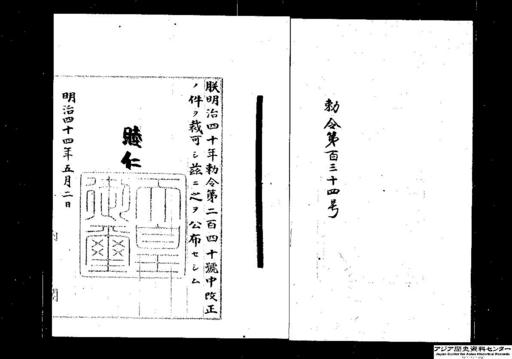 勅令第百三十四号
朕明治四十年勅令第二百四十號中改正
ノ件ヲ裁可シ茲ニ之ヲ公布セシム
睦仁
天皇御璽
明治四十四年五月二日
内閣
アジア歴史資料センター
Japan Center for Asian Historical Records